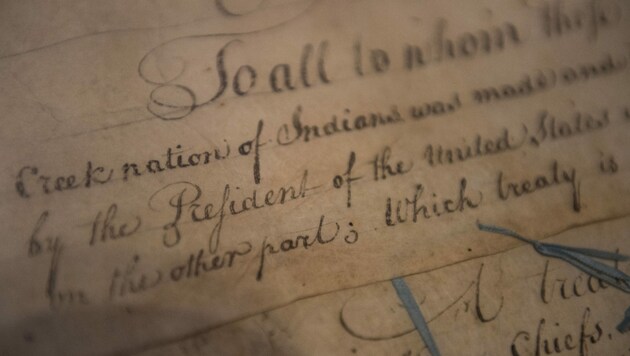 To all to whom these
Creek nation of Indians was made and
by the President of the United States
on the other part; Which treaty is
A treat
Chiefs.